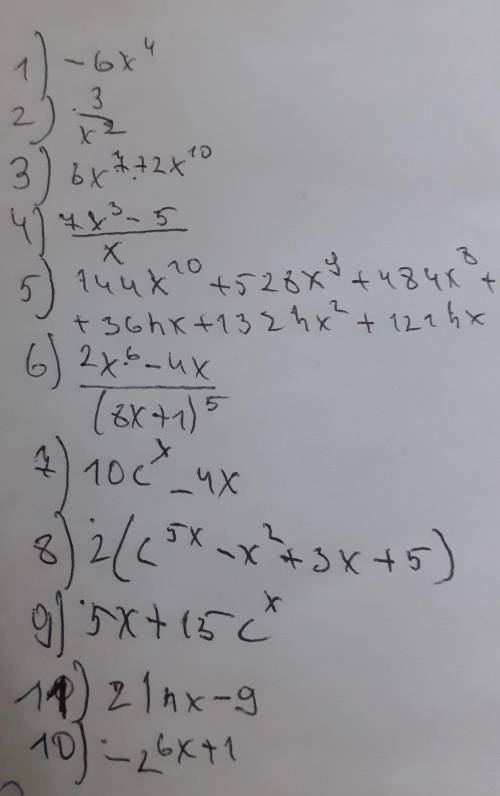 1) -6x⁴
2) 3/x²
3) 6x⁷+2x¹⁰
4) (7x³-5)/x
5) 144x¹⁰+528x⁹+484x⁸+
+36hx+132hx²+121hx
6) (2x⁶-4x)/(8x+1)⁵
7) 10c^x-4x
8) 2(c^5x-x²+3x+5)
9) 5x+15c^x
11) 2lnx-9
10) -2⁶x+1